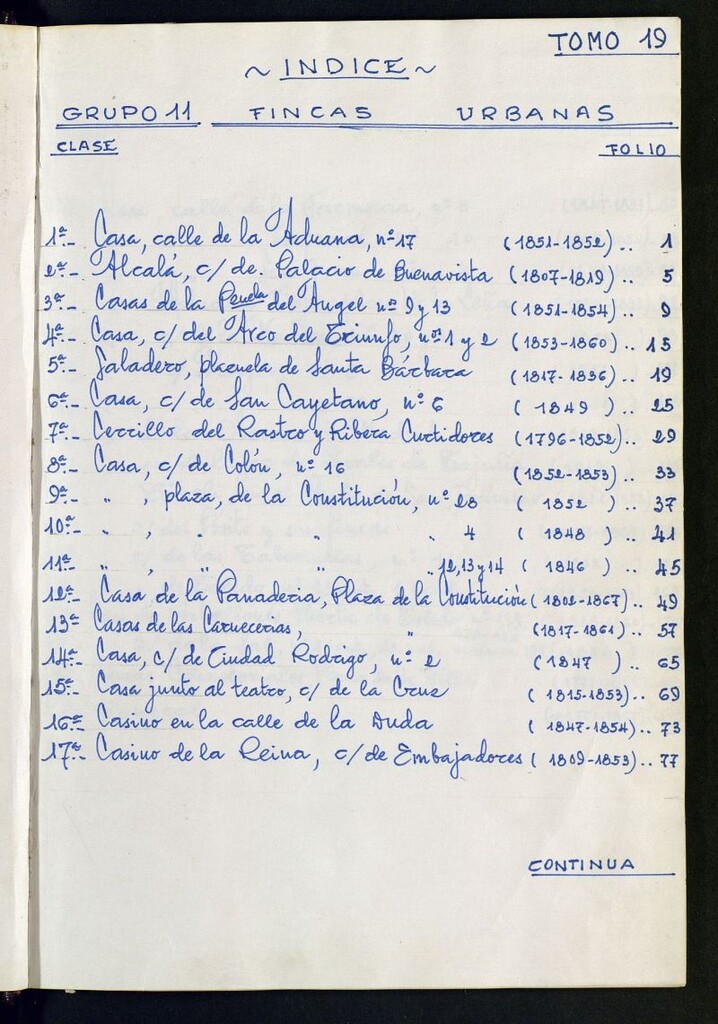 TOMO 19
~ INDICE ~
GRUPO 11 FINCAS URBANAS
CLASE FOLIO
1ª.- Casa, calle de la Aduana, nº 17 (1851-1852) .. 1
2ª.- Alcalá, c/ de. Palacio de Buenavista (1807-1819) .. 5
3ª.- Casas de la del Angel nºs 9 y 13 (1851-1854) .. 9
4ª.- Casa, c/ del Arco del Triunfo, nºs 1 y 2 (1853-1860) .. 15
5ª.- Saladero, plazuela de Santa Bárbara (1817-1836) .. 19
6ª.- Casa, c/ de San Cayetano, nº 6 ( 1849 ) .. 25
7ª.- Cerrillo del Rastro y Ribera Curtidores (1796-1852) .. 29
8ª.- Casa, c/ de Colón, nº 16 (1852-1853) .. 33
9ª.- " , plaza, de la Constitución, nº 28 ( 1852 ) .. 37
10ª.- " , " " " 4 ( 1848 ) .. 41
11ª.- " , " " " 12, 13 y 14 ( 1846 ) .. 45
12ª.- Casa de la Panaderia, Plaza de la Constitución (1802-1867) .. 49
13ª.- Casas de las Carnecerias, " (1817-1861) .. 57
14ª.- Casa, c/ de Ciudad Rodrigo, nº 2 ( 1847 ) .. 65
15ª.- Casa junto al teatro, c/ de la Cruz (1815-1853) .. 69
16ª.- Casino en la calle de la Duda (1847-1854) .. 73
17ª.- Casino de la Reina, c/ de Embajadores (1809-1853) .. 77
CONTINUA